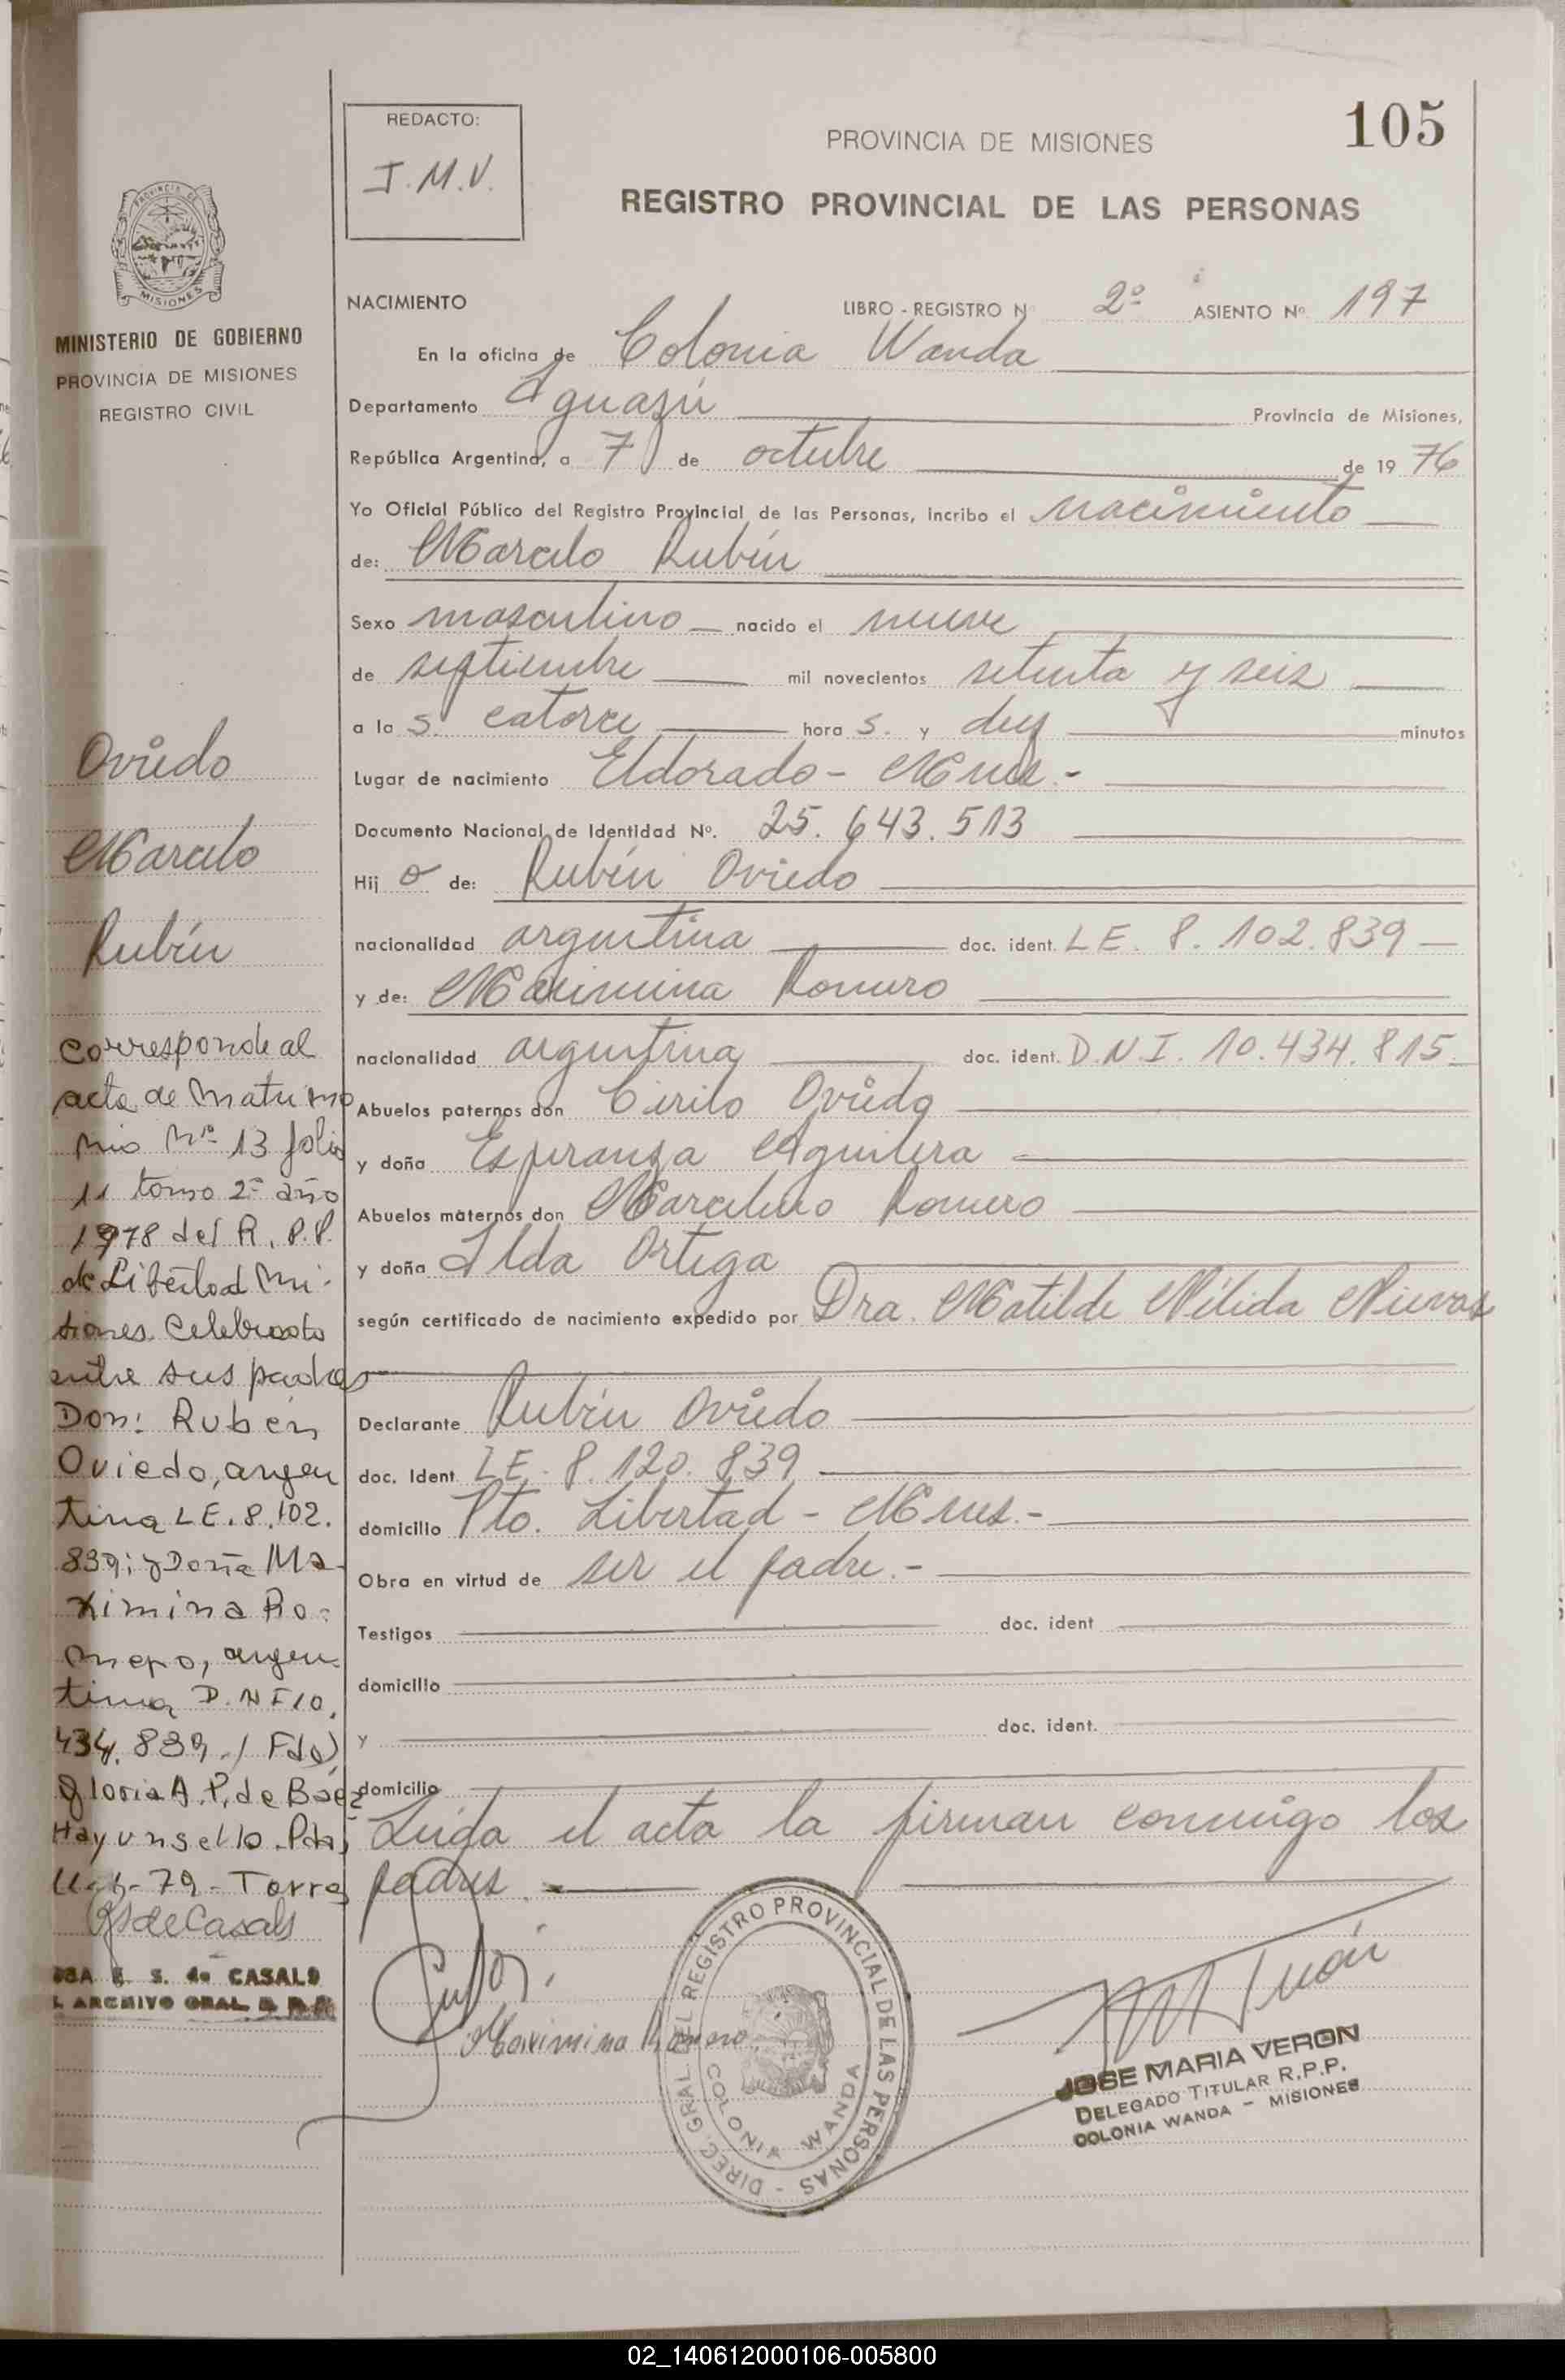 105
REDACTO:
J.M.V.
PROVINCIA DE MISIONES
REGISTRO PROVINCIAL DE LAS PERSONAS
PROVINCIA DE
MISIONES
MINISTERIO DE GOBIERNO
PROVINCIA DE MISIONES
REGISTRO CIVIL
NACIMIENTO LIBRO - REGISTRO N 2º ASIENTO Nº 197
En la oficina de Colonia Wanda
Departamento Iguazú Provincia de Misiones,
República Argentina, a 7 de octubre de 19 76
Yo Oficial Público del Registro Provincial de las Personas, incribo el nacimiento
de: Marcelo Rubén
Sexo masculino nacido el nueve
de septiembre mil novecientos setenta y seis
a la s. catorce hora s. y diez minutos
Lugar de nacimiento Eldorado - Mnes.-
Documento Nacional de Identidad Nº. 25.643.513
Hij o de: Rubén Oviedo
nacionalidad argentina doc. ident. LE. 8.102.839
y de: Maximina Romero
nacionalidad argentina doc. ident. D.N.I. 10.434.815
Abuelos paternos don Cirilo Oviedo
y doña Esperanza Aguilera
Abuelos maternos don Marcelino Romero
y doña Ilda Ortega
según certificado de nacimiento expedido por Dra. Matilde Nélida Nievas
Declarante Rubén Oviedo
doc. Ident. LE. 8.120.839
domicilio Pto. Libertad - Mnes.-
Obra en virtud de ser el padre.-
Testigos doc. ident
domicilio
y doc. ident.
domicilio
Leída el acta la firman conmigo los
padres.
Oviedo
Marcelo
Rubén
Corresponde al
acta de Matrimo
nio Nº 13 folio
11 tomo 2º año
1978 del R.P.P.
de Libertad Mi-
siones. Celebrado
entre sus padres
Don: Rubén
Oviedo, argen
tino LE. 8.102.
839; y Doña Ma-
ximina Ro-
mero, argen-
tina D.N I 10.
434.839./ Fdo)
Gloria A. P. de Baez
Hay un sello. Pdas
79 - Torres
de Casals
S. de CASALS
ARCHIVO GRAL
Maximina Romero
DIREC. GRAL. DEL REGISTRO PROVINCIAL DE LAS PERSONAS -
COLONIA WANDA
JOSE MARIA VERON
DELEGADO TITULAR R.P.P.
COLONIA WANDA - MISIONES
02_140612000106-005800